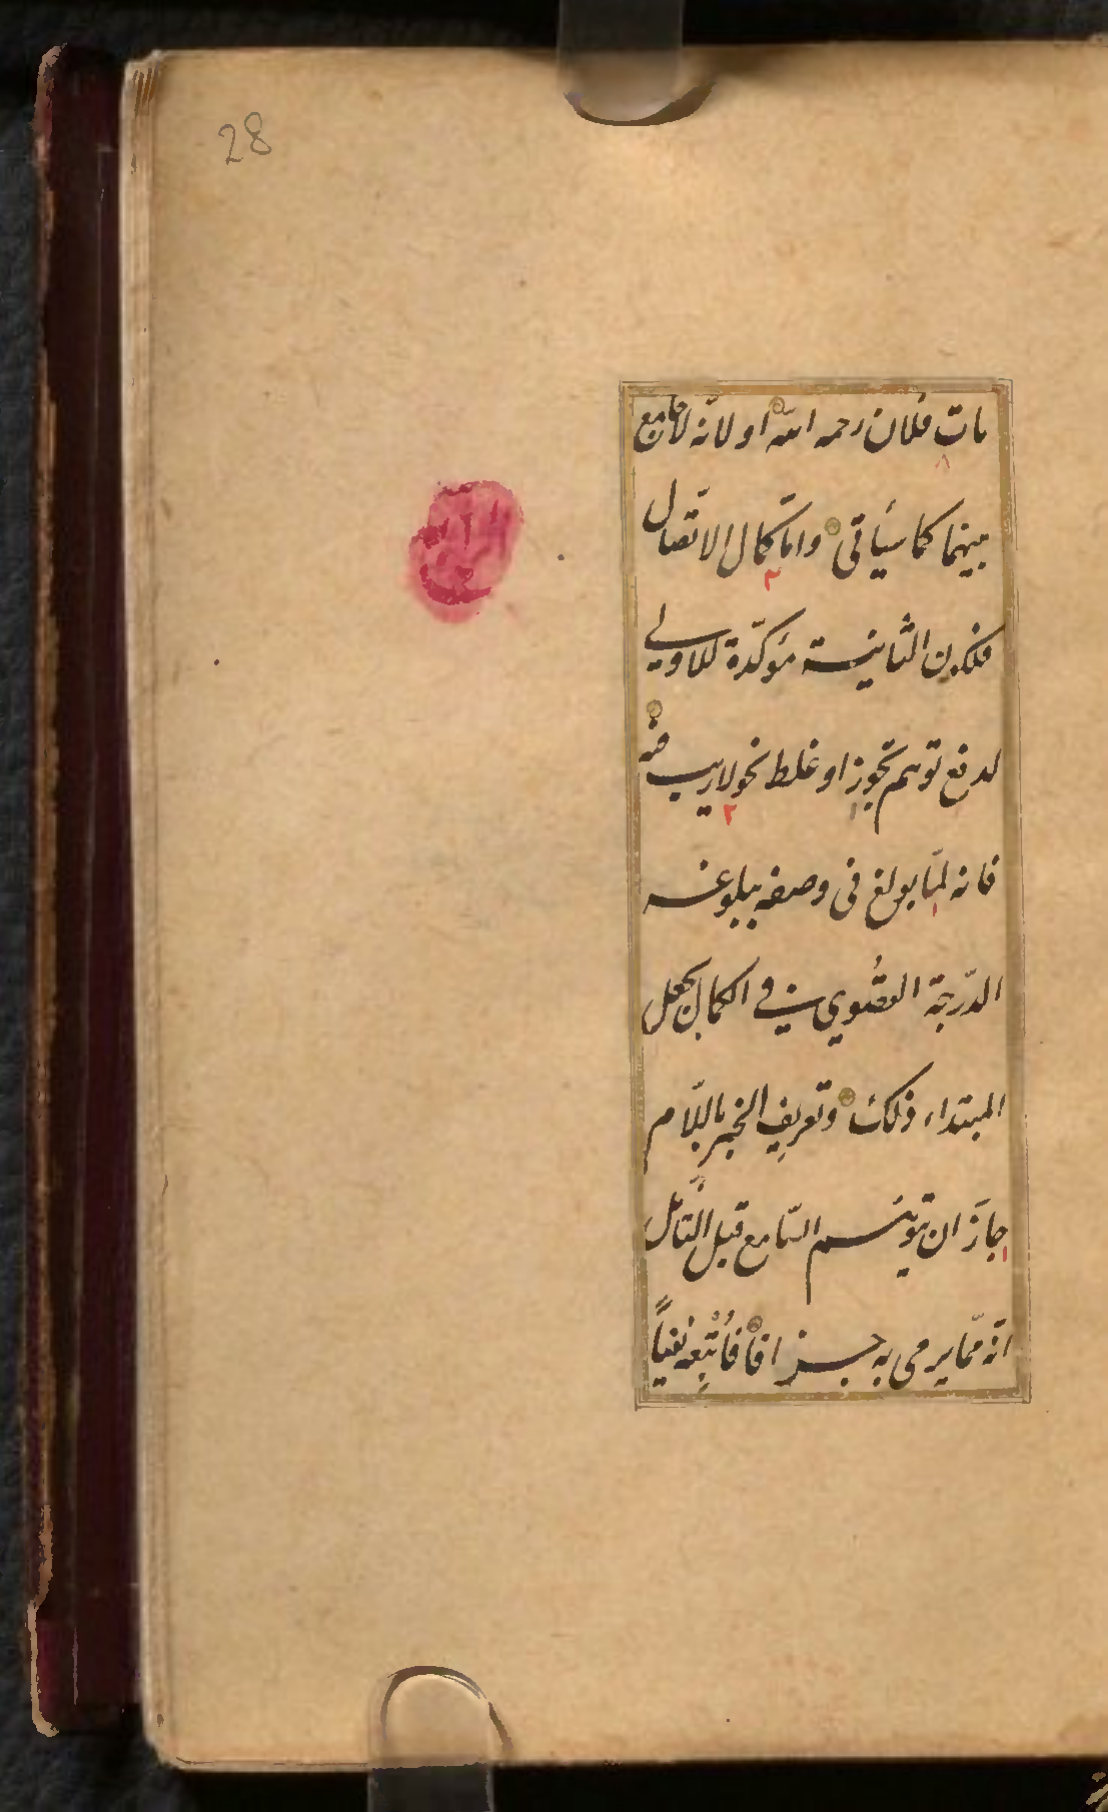 28
مات فلان رحمه الله او لانه لا جامع
بينهما كما سيأتى واما كمال الاتصال
فلكون الثانية مؤكدة للاولى
لدفع توهم تجوز او غلط نحو لا ريب فيه
فانه لما بولغ فى وصفه ببلوغه
الدّرجة القصوى فى الكمال بجعل
المبتداء ذلك وتعريف الخبر باللّام
جاز ان يتوهم السّامع قبل التأمّل
انّه ممّا يرمى به جزافا فأُتبِعه نفياً